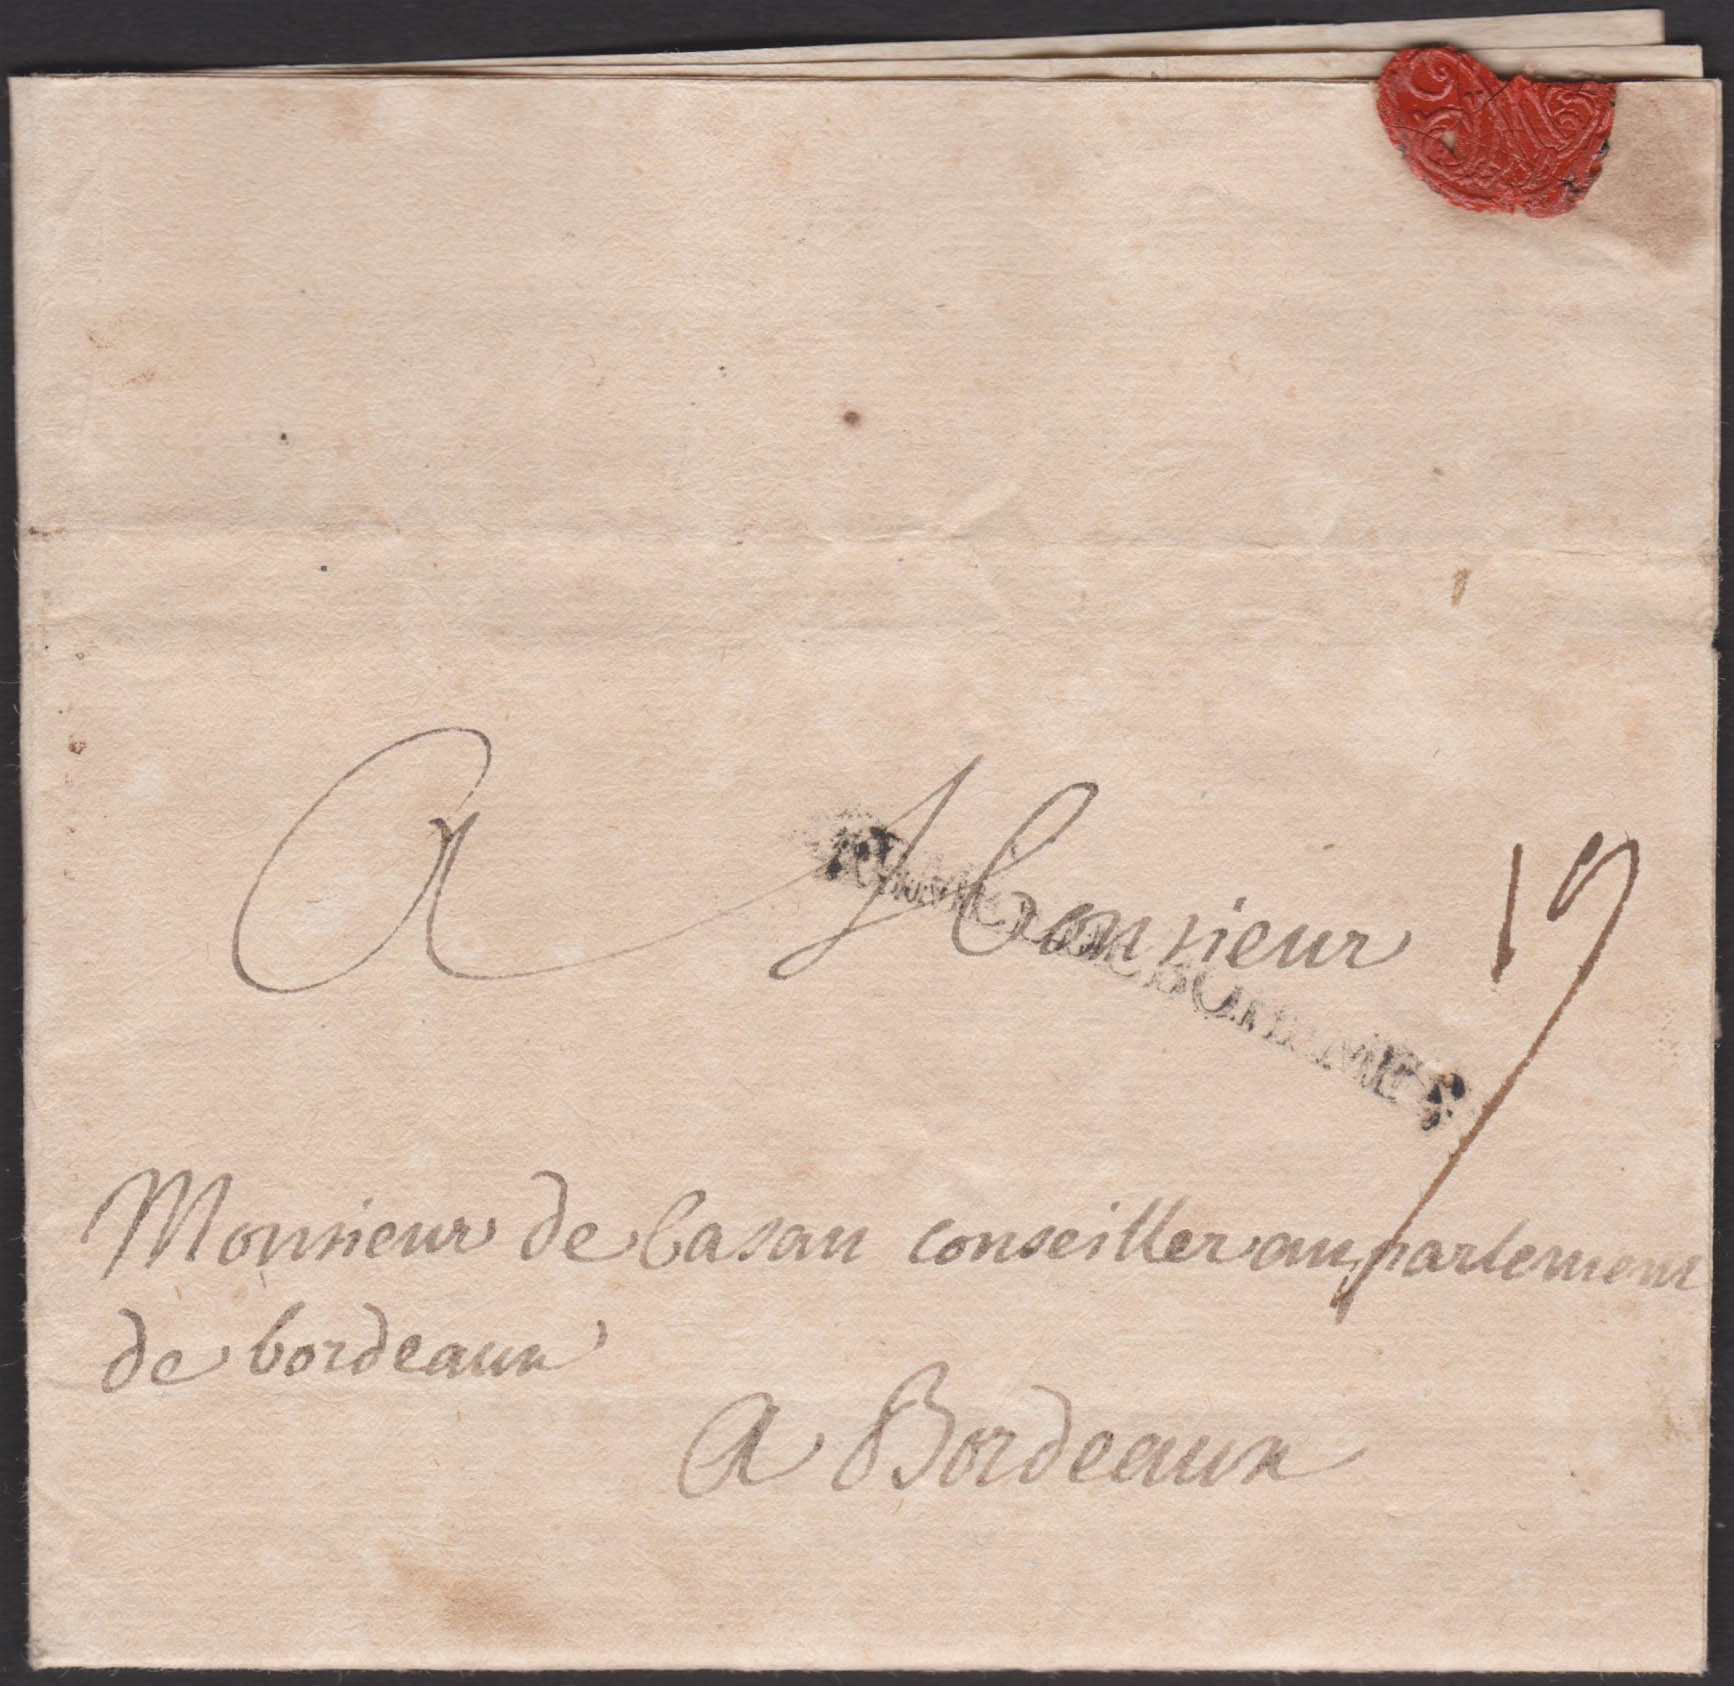 A Monsieur 19
Monsieur de Casau conseiller au parlement
de bordeaux
A Bordeaux